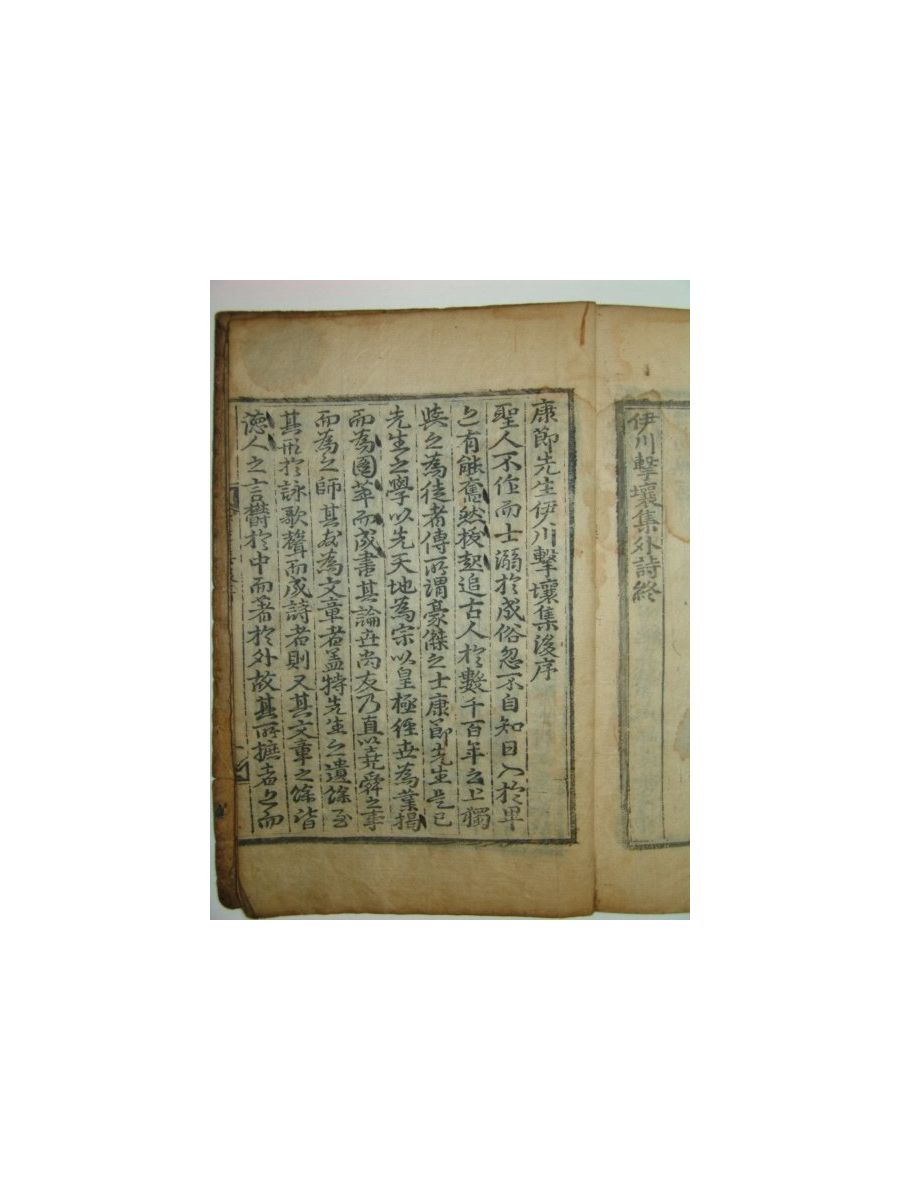 伊川擊壤集外詩終
康節先生伊川擊壤集後序
聖人不作而士溺於成俗忽不自知日入於卑
之有能奮然拔起追古人於數千百年之上獨
與之為徒者傳所謂豪傑之士康節先生是已
先生之學以先天地為宗以皇極經世為業揭
而為圖萃而成書其論世尚友乃直以堯舜之事
而為之師其發為文章者盖特先生之遺餘至
其形於詠歌聲而成詩者則又其文章之餘皆
德人之言欝於中而著於外故其所摭者之而